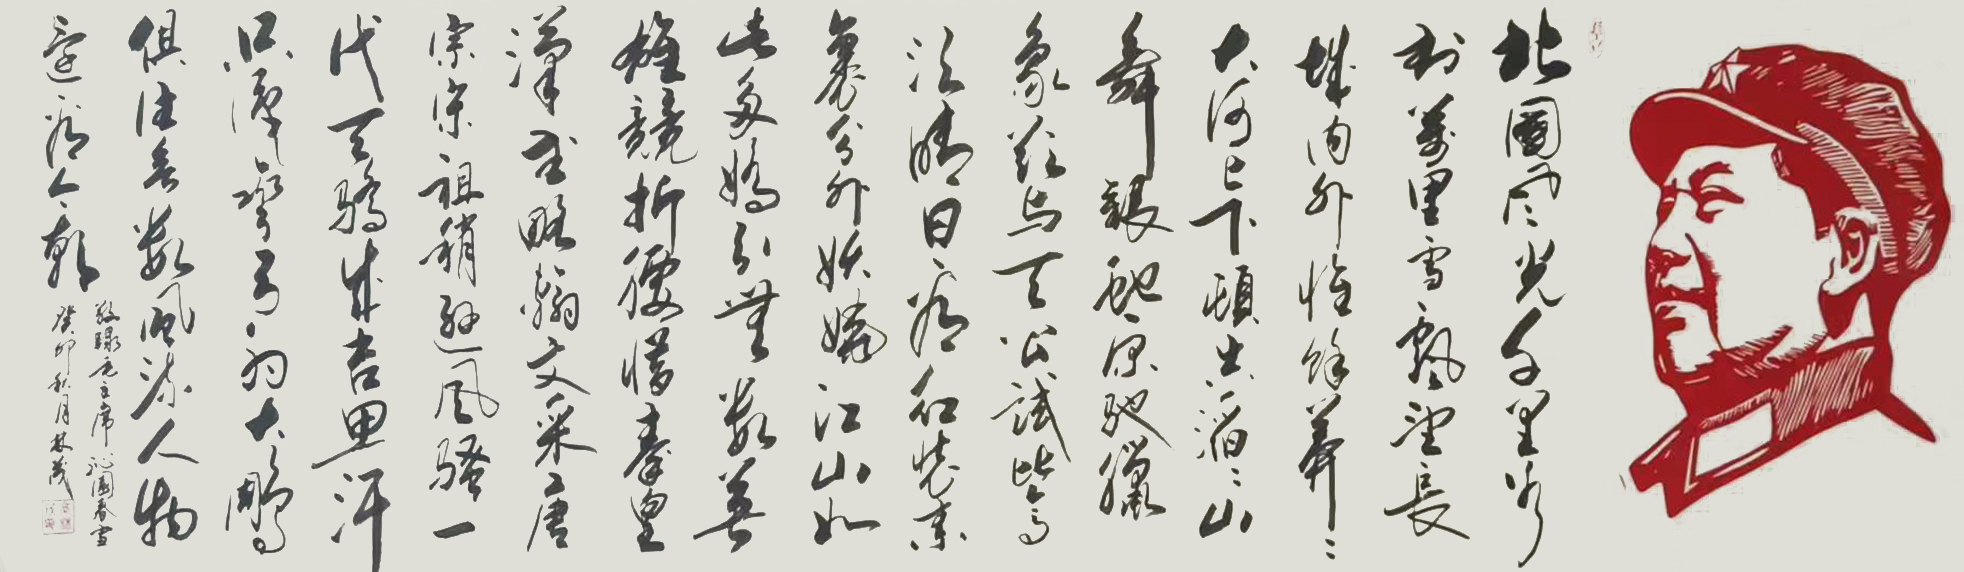 北國风光千里冰
封萬里雪飄望長
城内外惟餘莽〻
大河上下頓失滔〻山
舞銀蛇原馳臘
象欲与天公試比高
須晴日看红装素
裹分外妖嬈江山如
此多嬌引無數英
雄競折腰惜秦皇
漢武略輸文采唐
宗宋祖稍遜风騷一
代天驕成吉思汗
只識彎弓射大鵰
俱往矣數風流人物
還看今朝
敬録毛主席沁園春雪
癸卯秋月林茂